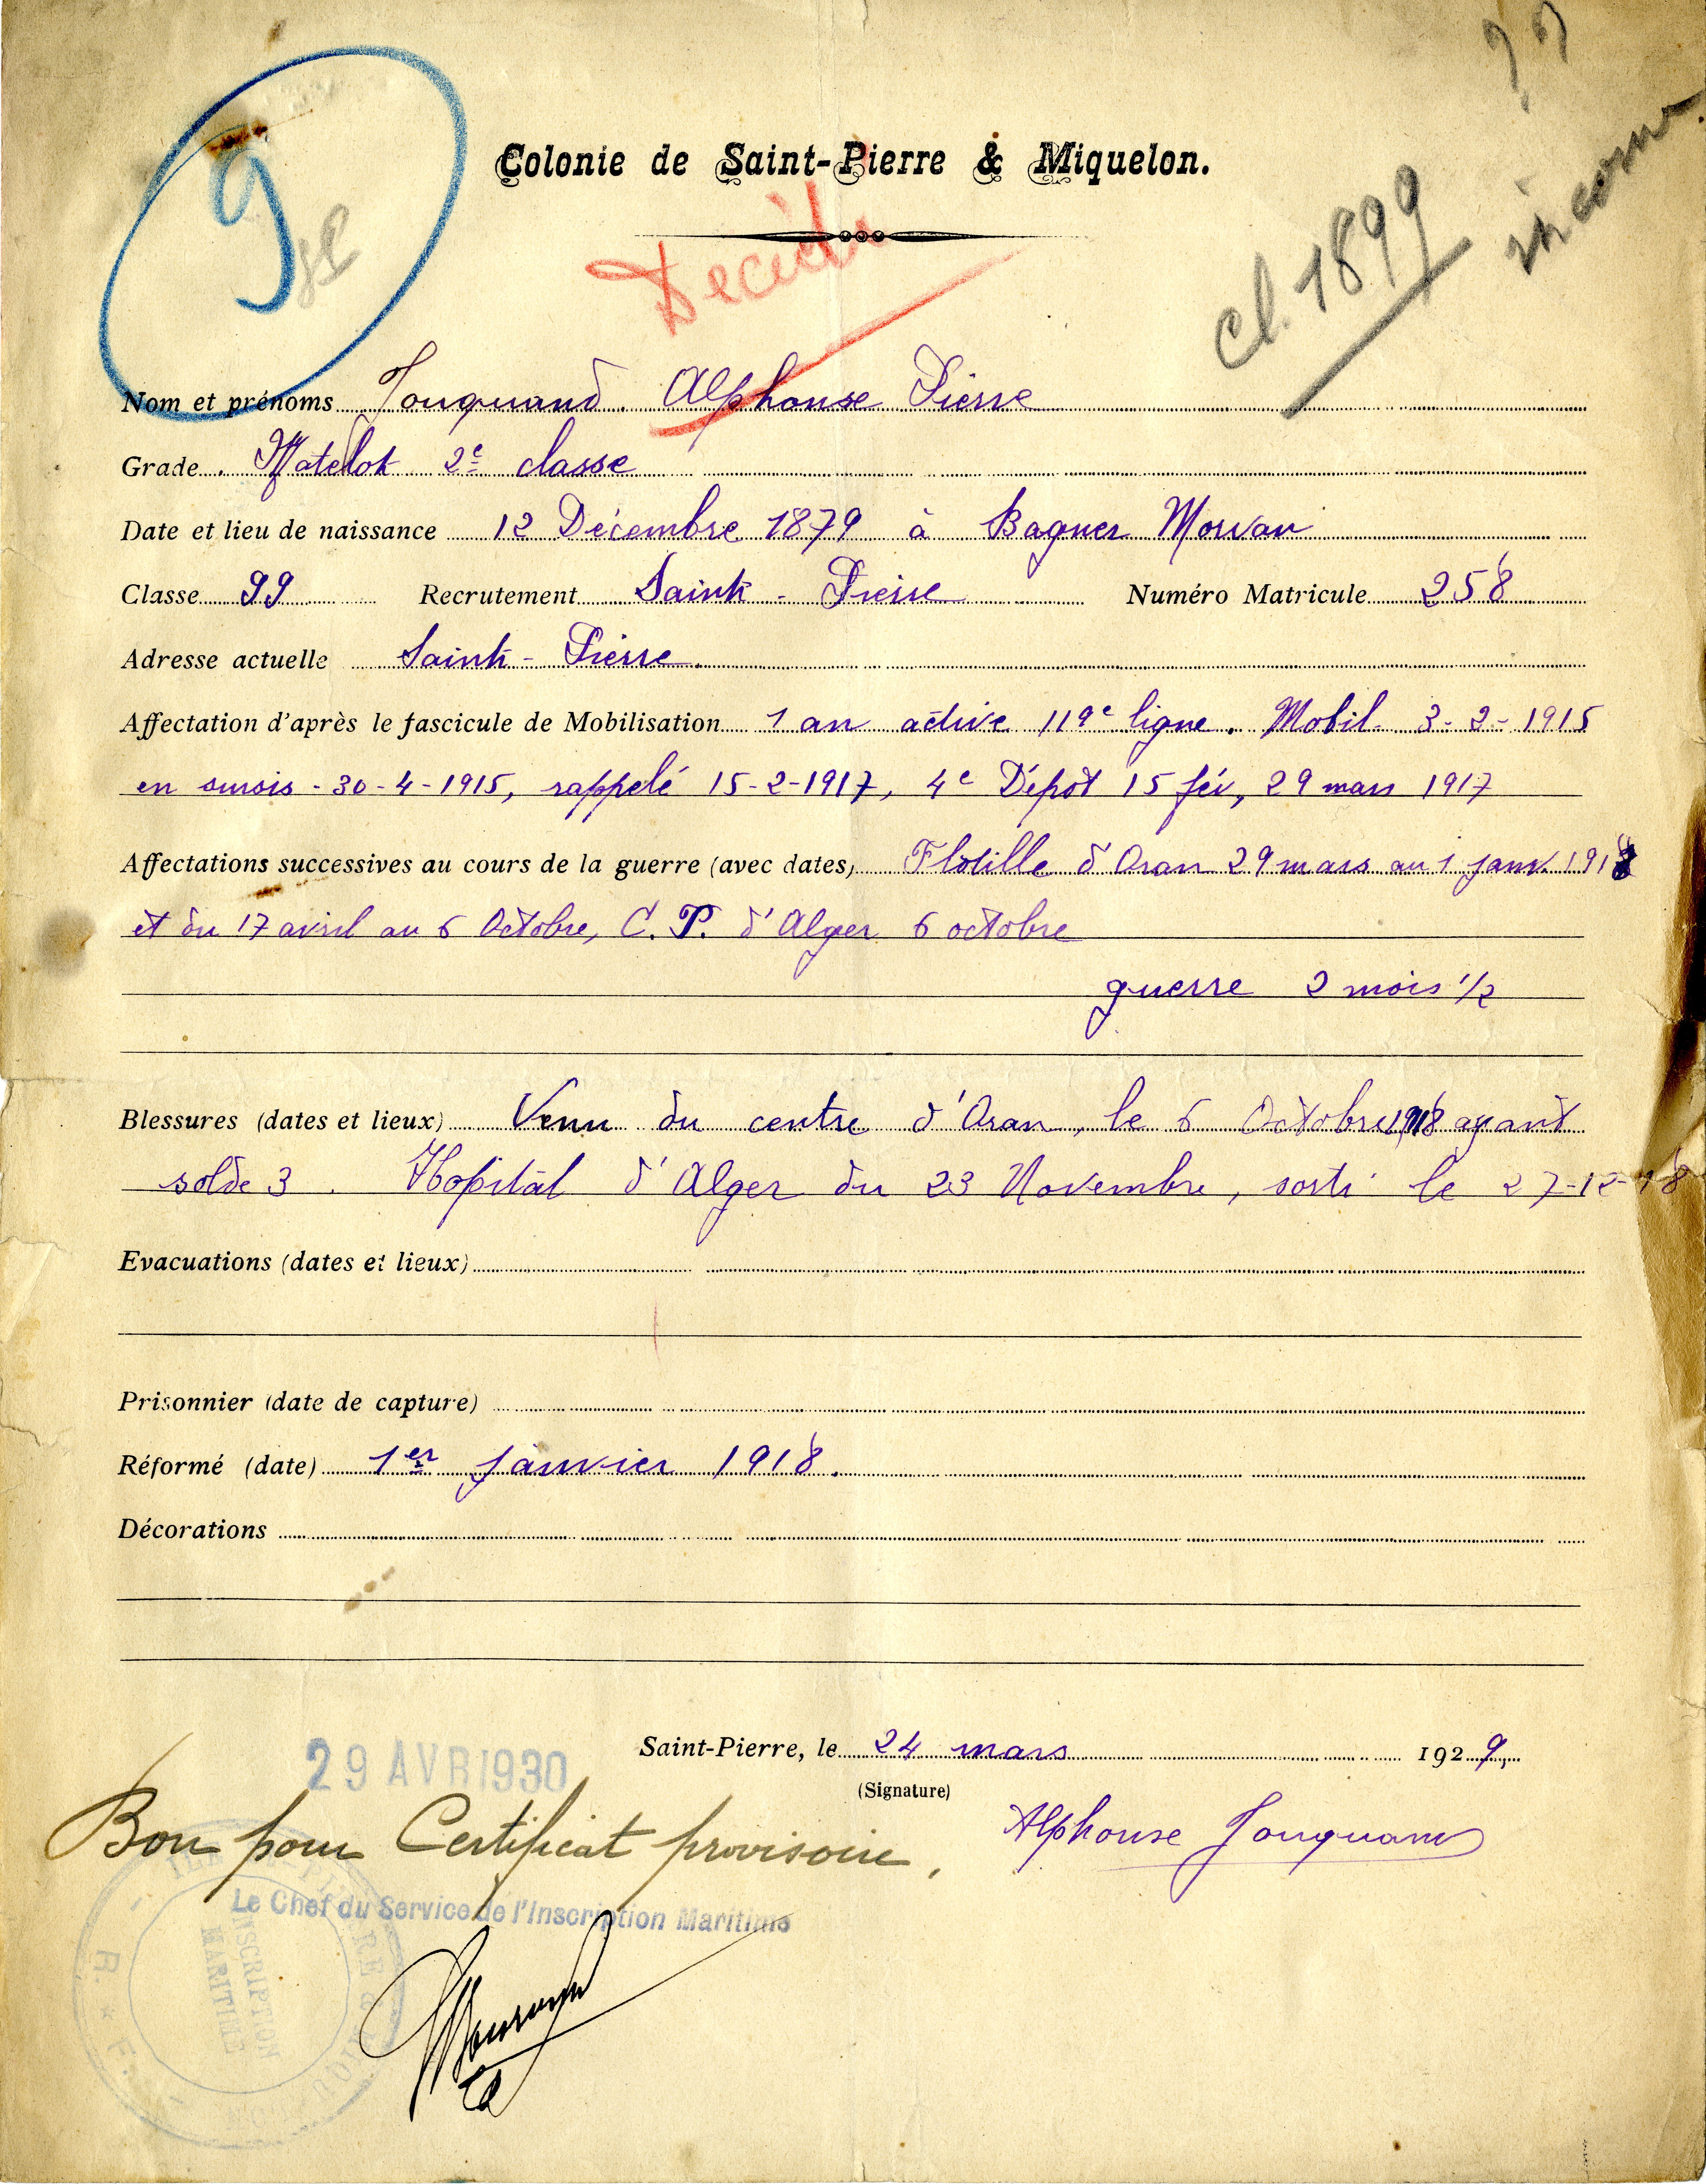 9
Colonie de Saint-Pierre & Miquelon.
Décédé
Cl. 1899
inconnu
Nom et prénoms Jouquand Alphonse Pierre
Grade Matelot 2e classe
Date et lieu de naissance 12 Décembre 1879 à Baguer Morvan
Classe 99 Recrutement Saint-Pierre Numéro Matricule 258
Adresse actuelle Saint-Pierre
Affectation d'après le fascicule de Mobilisation 1 an active 119e ligne. Mobil. 3-2-1915
en sursis - 30-4-1915, rappelé 15-2-1917, 4e Dépôt 15 fév, 29 mars 1917
Affectations successives au cours de la guerre (avec dates) Flotille d'Oran 29 mars au 1 janv. 1918
et du 17 avril au 6 Octobre, C. P. d'Alger 6 octobre
guerre 2 mois 1/2
Blessures (dates et lieux) Venu du centre d'Oran, le 6 Octobre 1918 ayant
solde 3. Hopital d'Alger du 23 Novembre, sorti le 27-12-18
Evacuations (dates et lieux)
Prisonnier (date de capture)
Réformé (date) 1er Janvier 1918.
Décorations
Saint-Pierre, le 24 mars 1929,
(Signature)
29 AVR 1930
Bon pour Certificat provisoire,
Alphonse Jouquand
Le Chef du Service de l'Inscription Maritime
INSCRIPTION
MARITIME
R. * F.